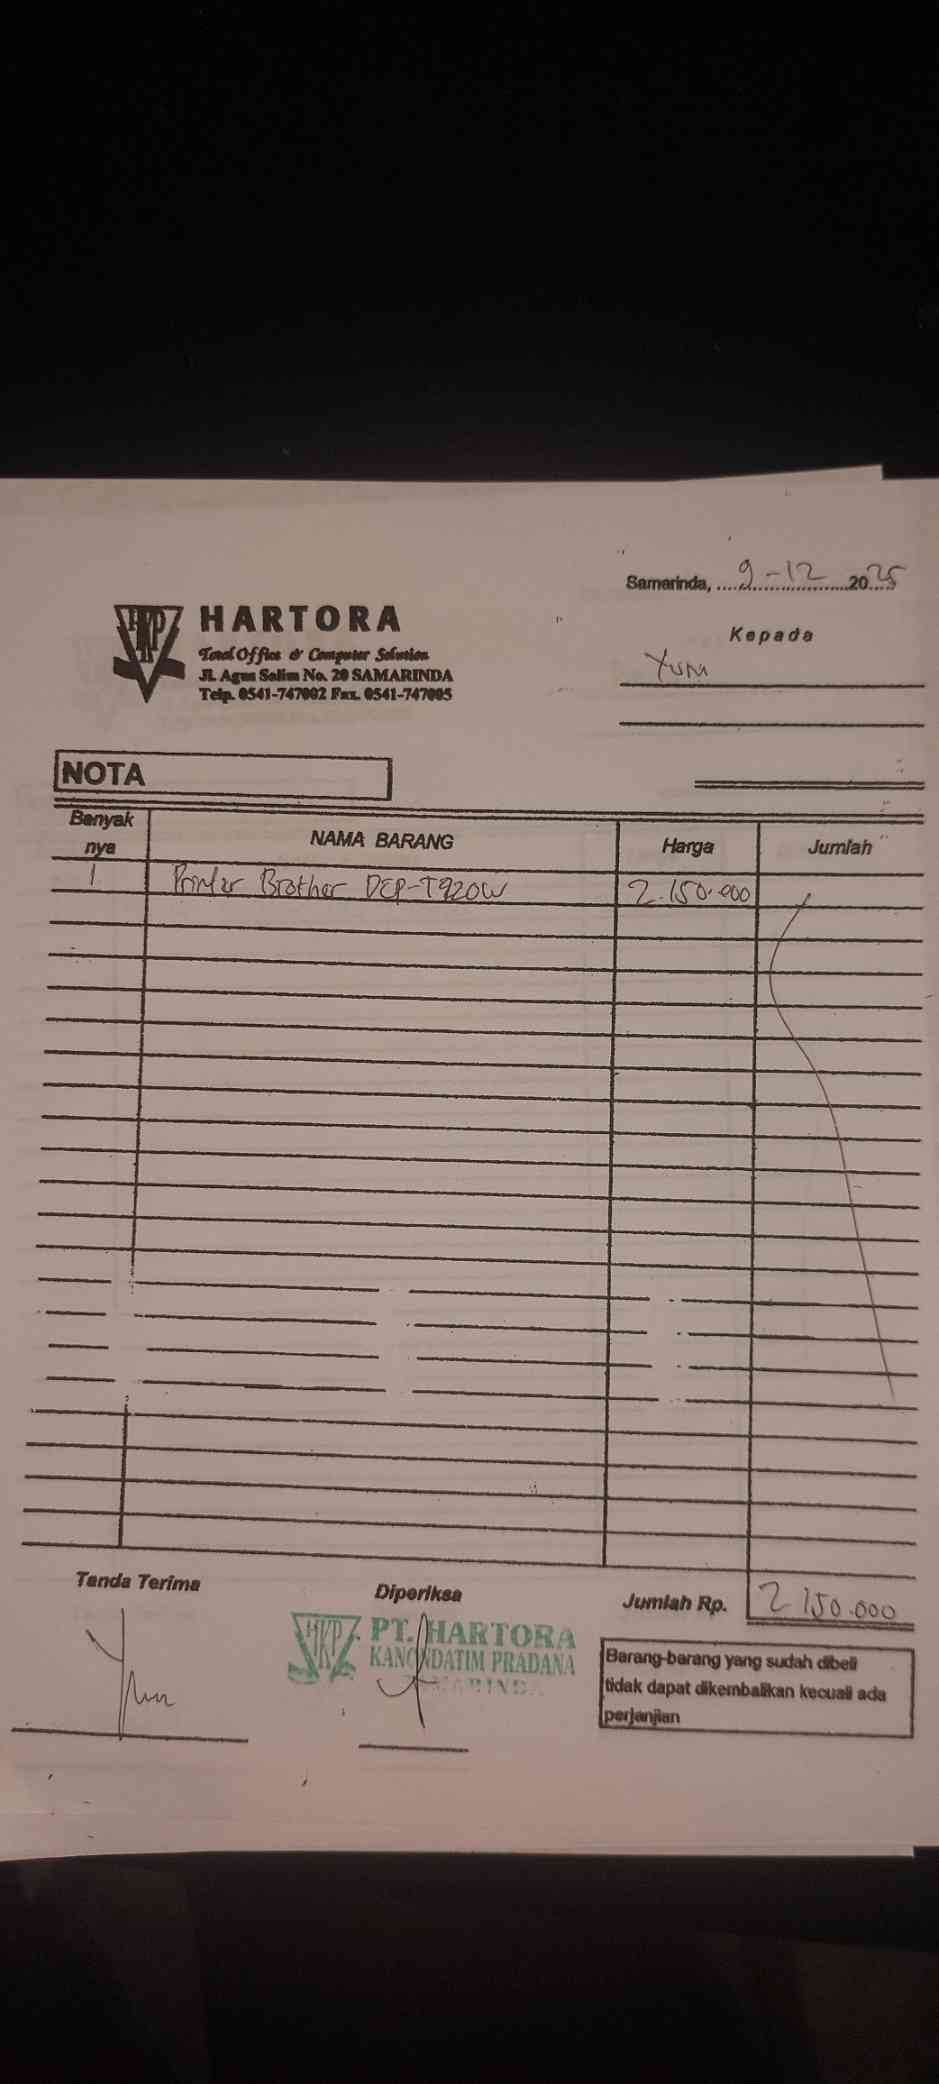 Samarinda, 9-12 2025
HARTORA
Total Office & Computer Solution
Jl. Agus Salim No. 20 SAMARINDA
Telp. 0541-747002 Fax. 0541-747005
Kepada
Yuni
NOTA
Banyak nya NAMA BARANG Harga Jumlah
1 Printer Brother DCP-T920W 2.150.000
Tanda Terima Diperiksa Jumlah Rp. 2.150.000
PT. HARTORA
KANONDATIM PRADANA
SAMARINDA
Barang-barang yang sudah dibeli
tidak dapat dikembalikan kecuali ada
perjanjian